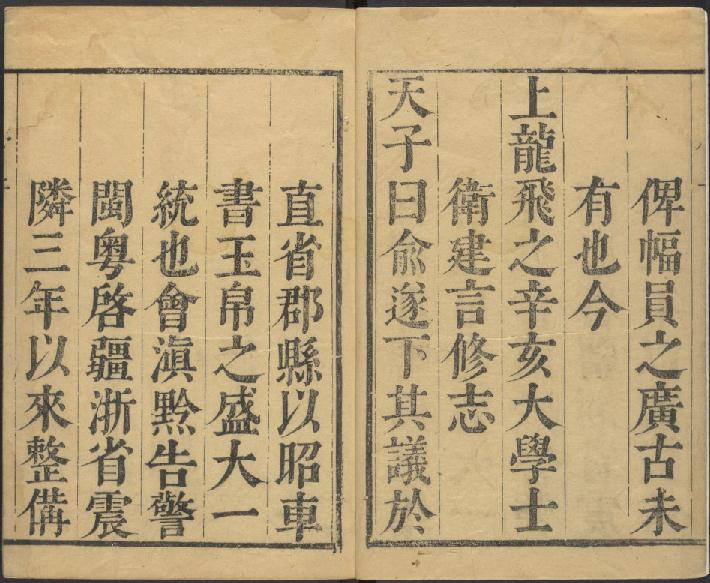 俾幅員之廣古未
有也今
上龍飛之辛亥大學士
衛建言修志
天子曰俞遂下其議於
直省郡縣以昭車
書玉帛之盛大一
統也會滇黔告警
閩粵啓疆浙省震
隣三年以來整備